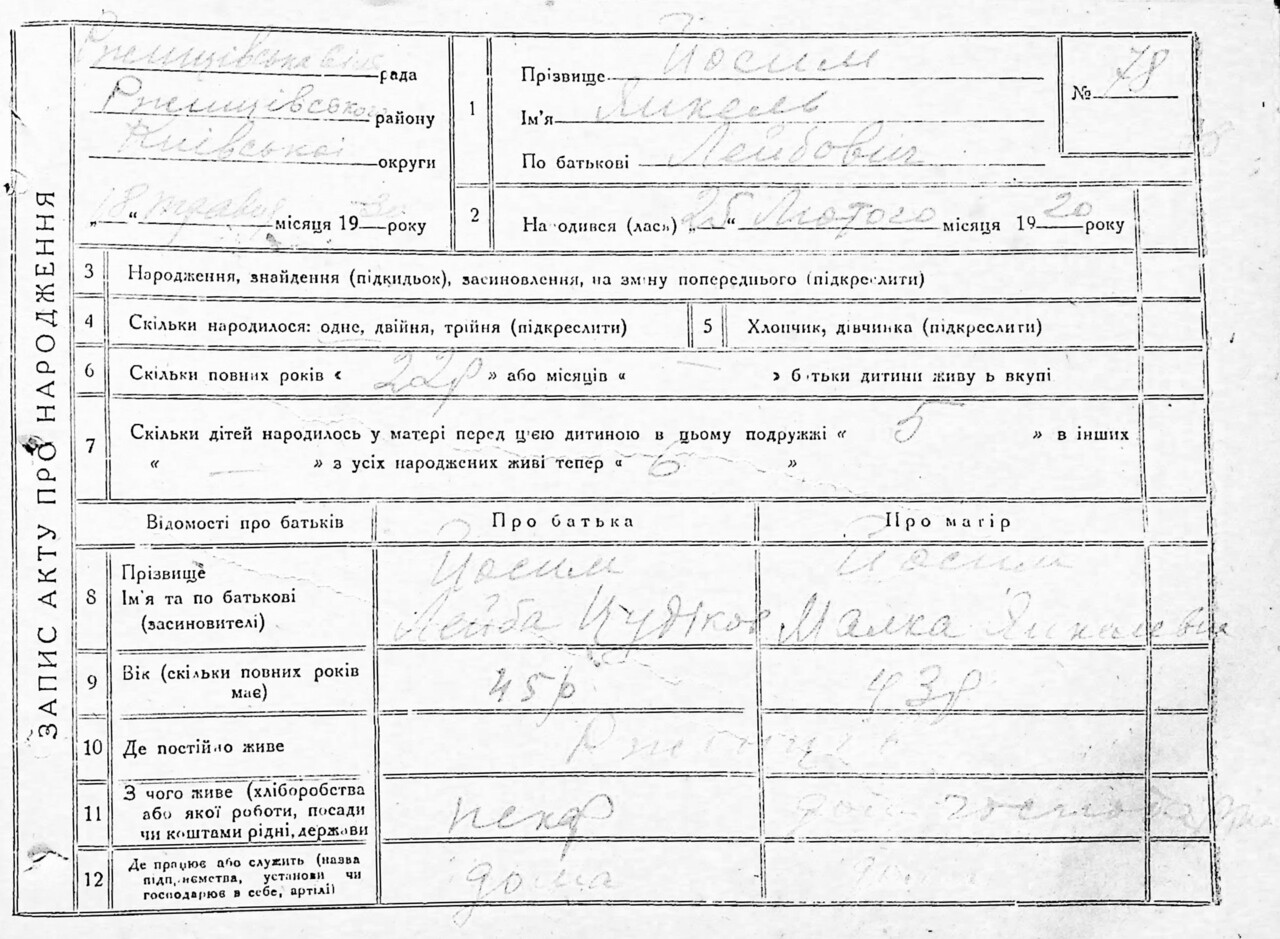 ЗАПИС АКТУ ПРО НАРОДЖЕННЯ
Ржищівська рада
Ржищівського району
Київської округи
„18 травня“ місяця 1930 року
1
Прізвище Йосим
Ім'я Янкель
По батькові Лейбович
№ 78
2
Народився (лась) „25“ Лютого місяця 1920 року
3 Народження, знайдення (підкидьок), засиновлення, на зміну попереднього (підкреслити)
4 Скільки народилося: одне, двійня, трійня (підкреслити)
5 Хлопчик, дівчинка (підкреслити)
6 Скільки повних років « 22 р » або місяців « — » батьки дитини живуть вкупі
7 Скільки дітей народилось у матері перед ц'єю дитиною в цьому подружжі « 5 » в інших
« — » з усіх народжених живі тепер « 6 »
Відомості про батьків Про батька Про матір
8 Прізвище Йосим Йосим
Ім'я та по батькові
(засиновителі) Лейба Малка
9 Вік (скільки повних років
має) 45 р 43 р
10 Де постійно живе
11 З чого живе (хліборобства
або якої роботи, посади
чи коштами рідні, держави пекар дом.
12 Де працює або служить (назва
підприємства, установи чи
господарює в себе, артілі) дома